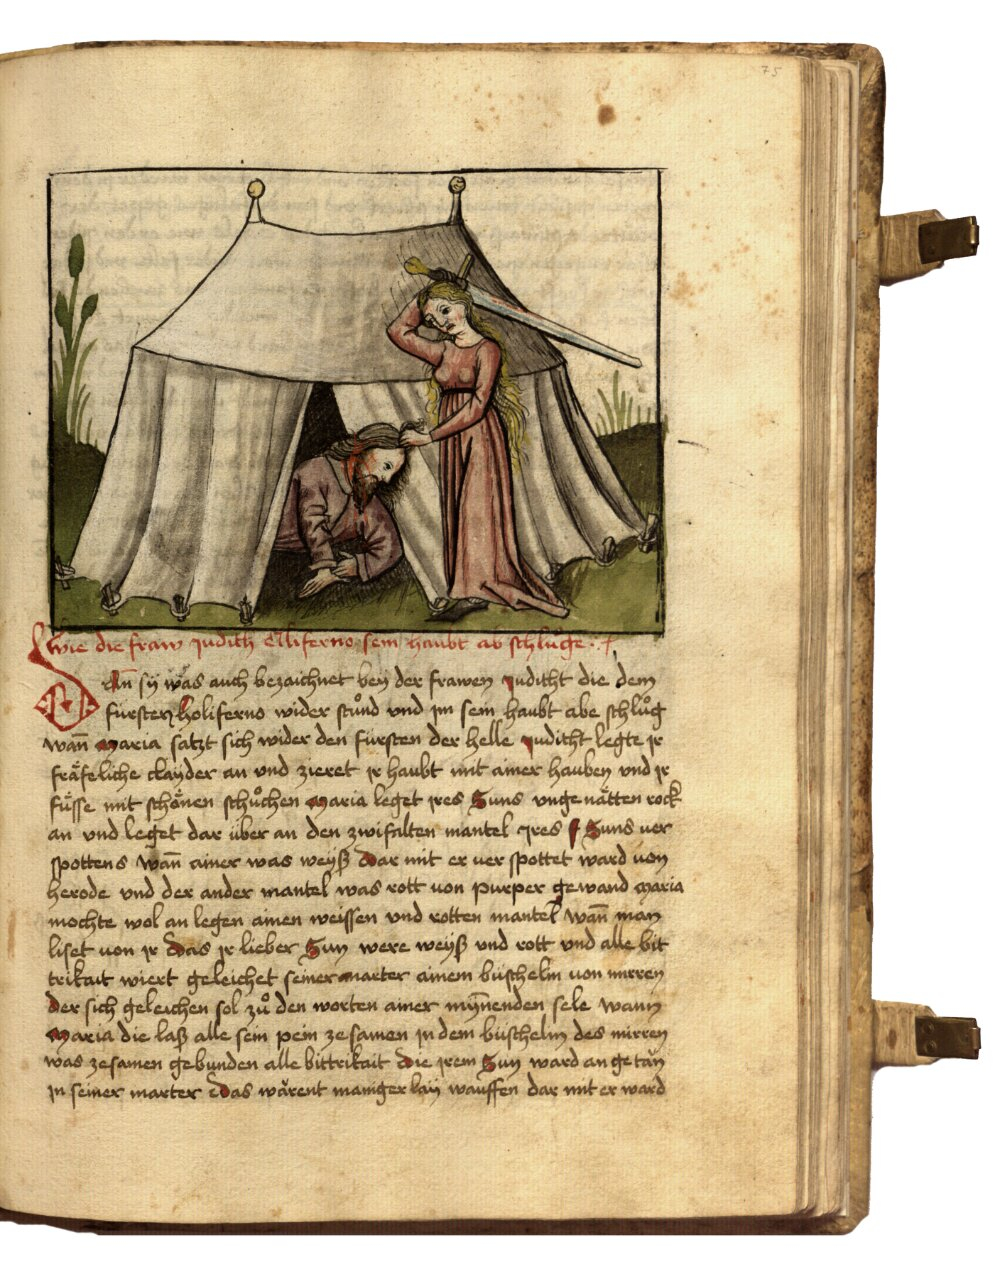 75
Wie die fraw Judith Olliferno sein haubt ab schlůge
Wañ sÿ was auch bezaichnet beÿ der frawen Juditht die dem
fürsten holiferno wider stůnd vnd im sein haubt abe schlůg
wañ Maria satzt sich wider den fürsten der helle Juditht legte ir
fräfeliche clayder an vnd zieret ir haubt mit ainer hauben vnd ir
füsse mit schönen schůchen Maria leget ires Suns vnge nätten rock
an vnd leget dar über an den zwifalten mantel ires Suns ver
spottens wañ ainer was weÿß Dar mit er ver spottet ward von
herode vnd der ander mantel was rott von purper gewand Maria
mochte wol an legen ainen weissen vnd rotten mantel wañ man
liset von ir Das ir lieber Sun were weÿß vnd rott vnd alle bit
trikait wiert geleichet seiner marter ainem büschelin von mirren
der sich geleichen sol zů den worten ainer mÿnenden sele wann
Maria die laß alle sein pein zesamen in dem büschelin des mirren
was zesamen gebunden alle bittrikait Die irem Sun ward an getän
in seiner marter Das wärent maniger laÿ wauffen dar mit er ward